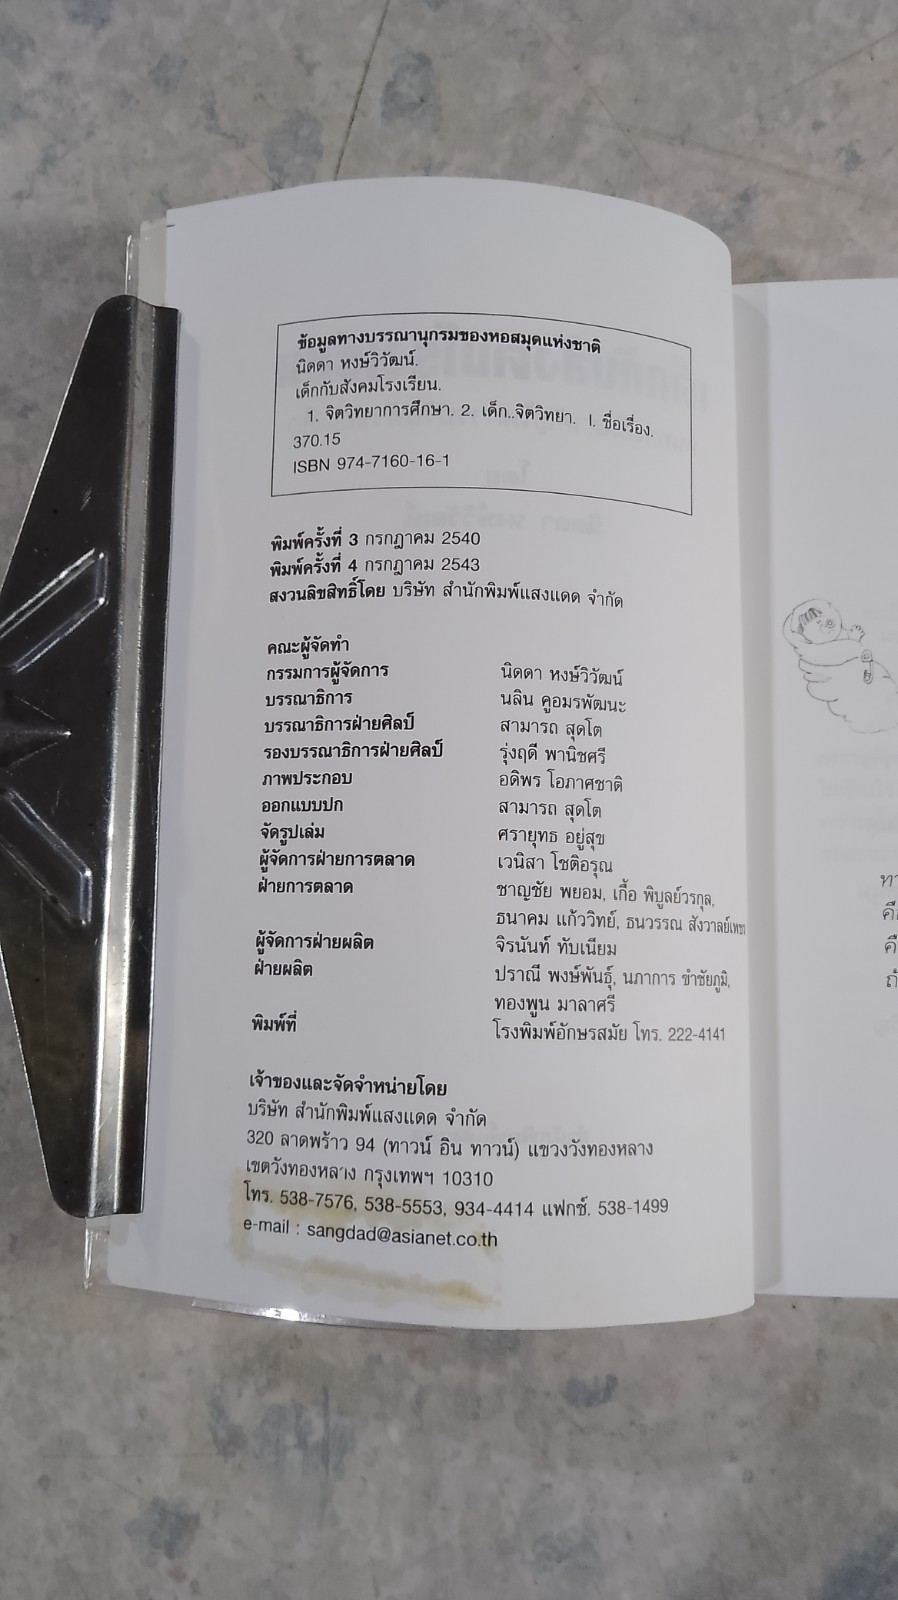 ข้อมูลทางบรรณานุกรมของหอสมุดแห่งชาติ
นิดดา หงษ์วิวัฒน์.
เด็กกับสังคมโรงเรียน.
1. จิตวิทยาการศึกษา. 2. เด็ก..จิตวิทยา. I. ชื่อเรื่อง.
370.15
ISBN 974-7160-16-1
พิมพ์ครั้งที่ 3 กรกฎาคม 2540
พิมพ์ครั้งที่ 4 กรกฎาคม 2543
สงวนลิขสิทธิ์โดย บริษัท สำนักพิมพ์แสงแดด จำกัด
คณะผู้จัดทำ
กรรมการผู้จัดการ นิดดา หงษ์วิวัฒน์
บรรณาธิการ นลิน คูอมรพัฒนะ
บรรณาธิการฝ่ายศิลป์ สามารถ สุดโต
รองบรรณาธิการฝ่ายศิลป์ รุ่งฤดี พานิชศรี
ภาพประกอบ อดิพร โอภาศชาติ
ออกแบบปก สามารถ สุดโต
จัดรูปเล่ม ศรายุทธ อยู่สุข
ผู้จัดการฝ่ายการตลาด เวนิสา โชติอรุณ
ฝ่ายการตลาด ชาญชัย พยอม, เกื้อ พิบูลย์วรกุล,
ธนาคม แก้ววิทย์, ธนวรรณ
ผู้จัดการฝ่ายผลิต จิรนันท์ ทับเนียม
ฝ่ายผลิต ปราณี พงษ์พันธุ์, นภาการ ขำชัยภูมิ,
ทองพูน มาลาศรี
พิมพ์ที่ โรงพิมพ์อักษรสมัย โทร. 222-4141
เจ้าของและจัดจำหน่ายโดย
บริษัท สำนักพิมพ์แสงแดด จำกัด
320 ลาดพร้าว 94 (ทาวน์ อิน ทาวน์) แขวงวังทองหลาง
เขตวังทองหลาง กรุงเทพฯ 10310
โทร. 538-7576, 538-5553, 934-4414 แฟกซ์. 538-1499
e-mail : sangdad@asianet.co.th